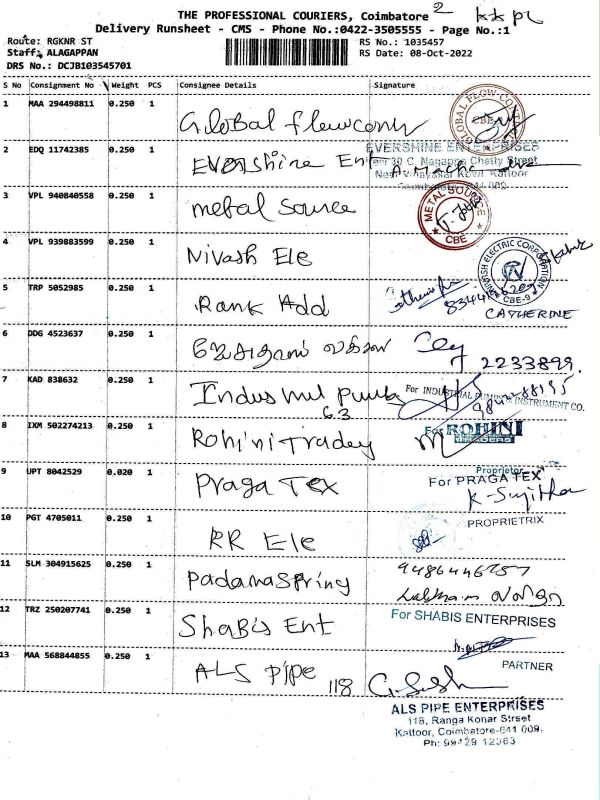 THE PROFESSIONAL COURIERS, Coimbatore 2
Delivery Runsheet - CMS - Phone No.:0422-3505555 - Page No.:1
Route: RGKNR ST RS No.: 1035457
Staff: ALAGAPPAN RS Date: 08-Oct-2022
DRS No.: DCJB103545701
S No Consignment No Weight PCS Consignee Details Signature
1 MAA 294498811 0.250 1 Global flowcomv GLOBAL FLOW CBE
2 EDQ 11742385 0.250 1 Evershine Ent EVERSHINE ENTERPRISES
30 C, Nagappa Chetty Street
Kattoor
3 VPL 940840558 0.250 1 metal source METAL SOURCE CBE
4 VPL 939883599 0.250 1 Nivash Ele NIVASH ELECTRIC CORPORATION CBE-9
5 TRP 5052985 0.250 1 Rank Add CATHERINE
6 DDG 4523637 0.250 1 2233899
7 KAD 838632 0.250 1 Industrial Pumbs For INDUSTRIAL PUMPS & INSTRUMENT CO.
63
8 IXM 502274213 0.250 1 Rohini Tradey For ROHINI
TRADERS
Proprietor
9 UPT 8042529 0.020 1 Praga Tex For PRAGA TEX
K. Sujitha
PROPRIETRIX
10 PGT 4705011 0.250 1 RR Ele
11 SLM 304915625 0.250 1 Padama Spring 9486446757
12 TRZ 250207741 0.250 1 Shabis Ent For SHABIS ENTERPRISES
PARTNER
13 MAA 568844855 0.250 1 ALS Pipe 118
ALS PIPE ENTERPRISES
118, Ranga Konar Street
Kattoor, Coimbatore-641 009.
Ph: 99429 12363